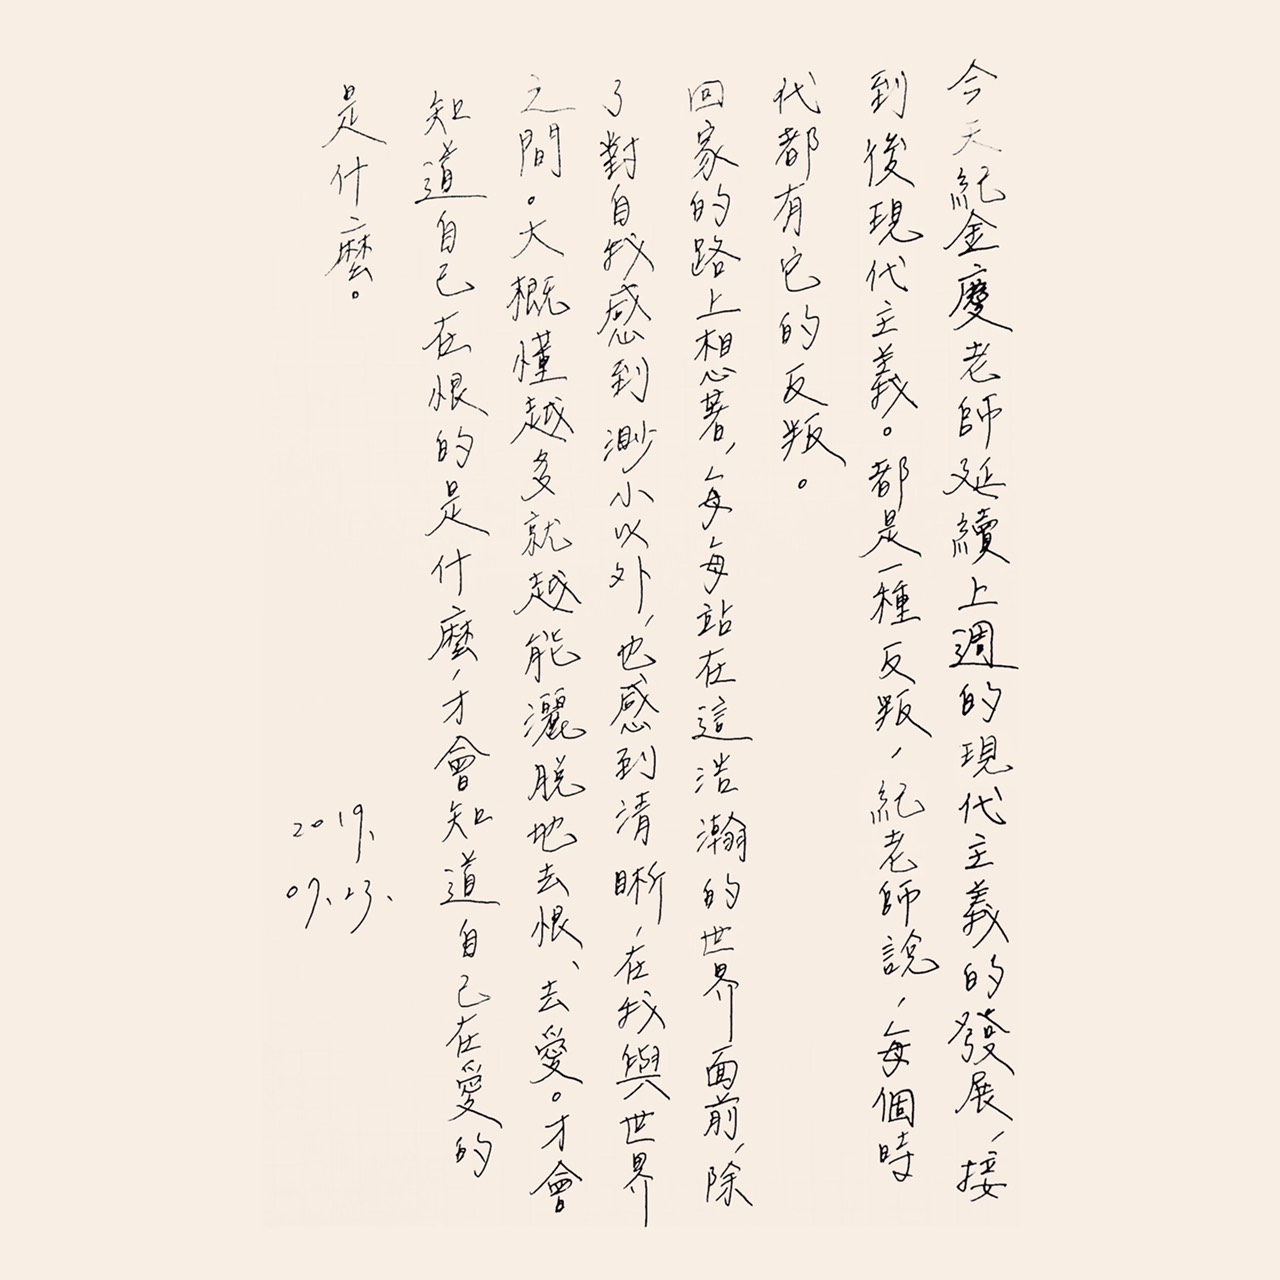 今天紀金慶老師延續上週的現代主義的發展，接
到後現代主義。都是一種反叛，紀老師說，每個時
代都有它的反叛。
回家的路上想著，每每站在這浩瀚的世界面前，除
了對自我感到渺小以外，也感到清晰，在我與世界
之間。大概懂越多就越能灑脫地去恨、去愛。才會
知道自己在恨的是什麼，才會知道自己在愛的
是什麼。
2019.
09.23.